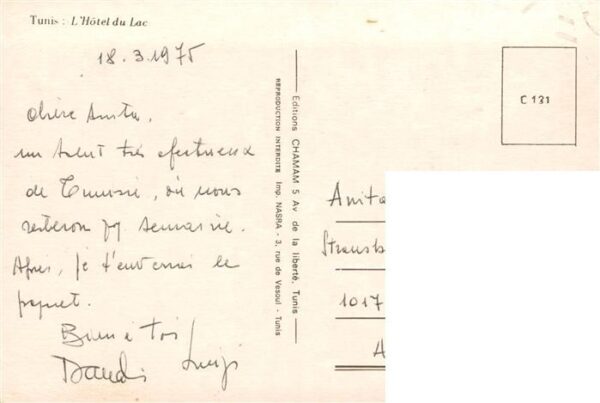 Tunis : L'Hôtel du Lac
18.3.1975
Chère Anita,
un salut très afectueux
de Tunisie, où nous
resteron semaine.
Après, je t'enverrai le
paquet.
Bien à toi
Luigi
Editions CHAMAM 5 Av. de la liberté. Tunis
REPRODUCTION INTERDITE Imp. NASRA - 3, rue de Vesoul - Tunis
C 131
Anita
Strassb
1017
A